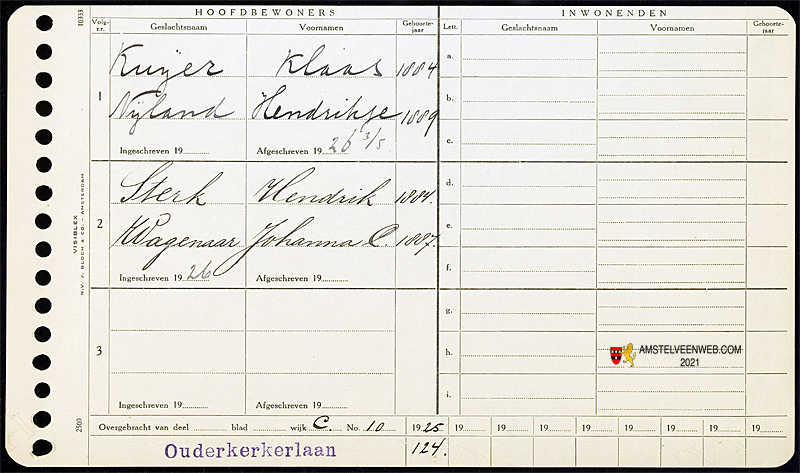 HOOFDBEWONERS INWONENDEN
Volg-nr. Geslachtsnaam Voornamen Geboorte-jaar Lett. Geslachtsnaam Voornamen Geboorte-jaar
1 Kuijer Klaas 1884 a.
Nijland Hendrikje 1889 b.
Ingeschreven 19 Afgeschreven 19 26 3/5 c.
2 Sterk Hendrik 1884. d.
Wagenaar Johanna C. 1887. e.
Ingeschreven 19 26 Afgeschreven 19 f.
3 g.
h.
Ingeschreven 19 Afgeschreven 19 i.
Overgebracht van deel blad wijk C. No. 10 19 25 19 19 19 19 19 19 19 19
Ouderkerkerlaan 124.
10333
VISIBLEX
N.V. J. BLOCH & CO. - AMSTERDAM
2503
AMSTELVEENWEB.COM
2021